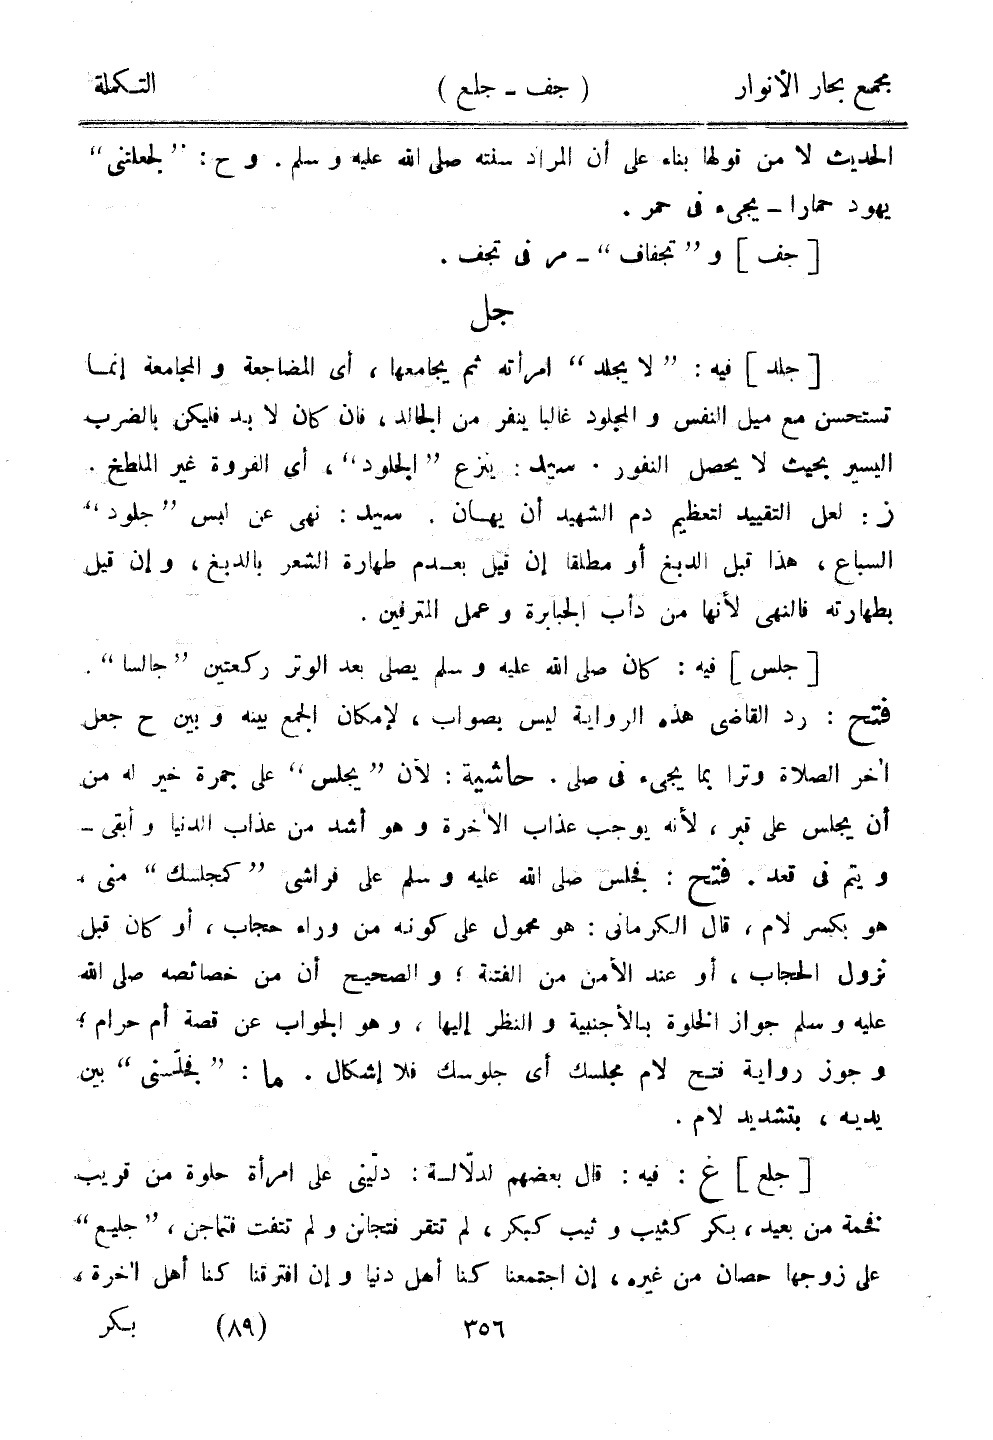 مجمع بحار الأنوار ( جف ـ جلع ) التكملة
الحديث لا من قولها بناء على أن المراد سنته صلى الله عليه و سلم . و ح : ”لجعلتنى“
يهود حمارا ـ يجىء فى حمر .
[ جف ] و ”تجفاف“ ـ مر فى تجف .
جل
[ جلد ] فيه : ”لا يجلد“ امرأته ثم يجامعها ، أى المضاجعة و المجامعة إنما
تستحسن مع ميل النفس و المجلود غالبا ينفر من الجالد ، فان كان لا بد فليكن بالضرب
اليسير بحيث لا يحصل النفور . سيد : ينزع ”الجلود“ ، أى الفروة غير الملطخ .
ز : لعل التقييد لتعظيم دم الشهيد أن يهان . سيد : نهى عن لبس ”جلود“
السباع ، هذا قبل الدبغ أو مطلقا إن قيل بعدم طهارة الشعر بالدبغ ، و إن قيل
بطهارته فالنهى لأنها من دأب الجبابرة و عمل المترفين .
[ جلس ] فيه : كان صلى الله عليه و سلم يصلى بعد الوتر ركعتين ”جالسا“ .
فتح : رد القاضى هذه الرواية ليس بصواب ، لإمكان الجمع بينه و بين ح جعل
اٰخر الصلاة وترا بما يجىء فى صلى . حاشية : لأن ”يجلس“ على جمرة خير له من
أن يجلس على قبر ، لأنه يوجب عذاب الاٰخرة و هو أشد من عذاب الدنيا و أبقى ـ
و يتم فى قعد . فتح : فجلس صلى الله عليه و سلم على فراشى ”كمجلسك“ منى ،
هو بكسر لام ، قال الكرمانى : هو محمول على كونه من وراء حجاب ، أو كان قبل
نزول الحجاب ، أو عند الأمن من الفتنة ؛ و الصحيح أن من خصائصه صلى الله
عليه و سلم جواز الخلوة بالأجنبية و النظر إليها ، و هو الجواب عن قصة أم حرام ؛
و جوز رواية فتح لام مجلسك أى جلوسك فلا إشكال . ما : ”فجلّسنى“ بين
يديه ، بتشديد لام .
[ جلع ] غ : فيه : قال بعضهم لدلّالة : دلّينى على امرأة حلوة من قريب
فخمة من بعيد ، بكر كثيب و ثيب كبكر ، لم تتقر فتجانن و لم تتفت فتماجن ، ”جليع“
على زوجها حصان من غيره ، إن اجتمعنا كنا أهل دنيا و إن افترقنا كنا أهل اٰخرة ،
٣٥٦ (٨٩) بكر